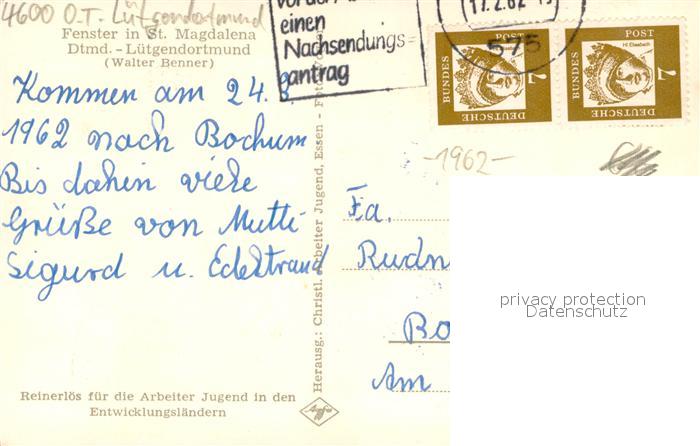 4600 O.T. Lütgendortmund
Fenster in St. Magdalena
Dtmd. - Lütgendortmund
(Walter Benner)
einen
Nachsendungs=
antrag
17.2.62
575
7
BUNDES
POST
DEUTSCHE
Hl Elisabeth
7
BUNDES
POST
DEUTSCHE
Hl Elisabeth
Kommen am 24. 
1962 nach Bochum
Bis dahin viele
Grüße von Mutti
Sigurd u. Edeltraud
-1962-
Fa.
Rudn
Bo
Am
privacy protection
Datenschutz
Herausg.: Christl. Arbeiter Jugend, Essen -
Reinerlös für die Arbeiter Jugend in den
Entwicklungsländern
Agfa